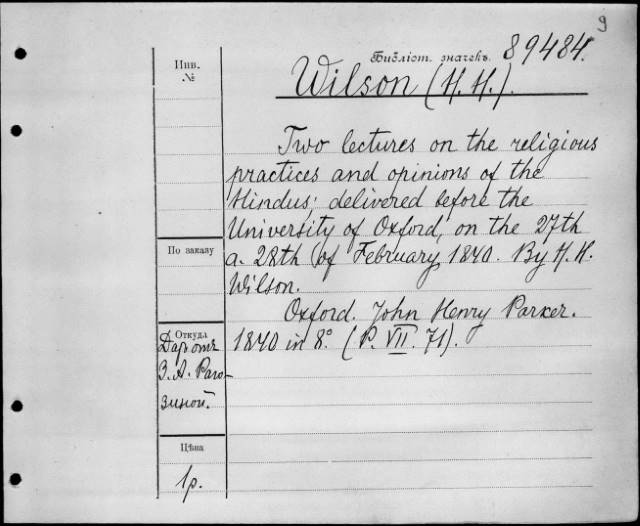 9
Инв.
№
Библіот. значекъ. 89484.
Wilson (H. H.).
Two lectures on the religious
practices and opinions of the
Hindus; delivered before the
University of Oxford, on the 27th
a. 28th of February 1840. By H. H.
Wilson.
Oxford. John Henry Parker.
1840 in 8º. (P. VII. 71).
По заказу
Откуда
Даръ отъ
З. А. Раго-
зиной.
Цѣна
1р.